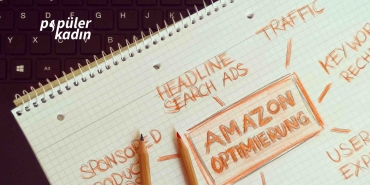 popüler
kadın
TRAFFIC
HEADLINE
SEARCH ADS
KEYWO
RECH
AMAZON
OPTIMIERUNG
SPONSORED
PRODUC
ADS
USER
EXP